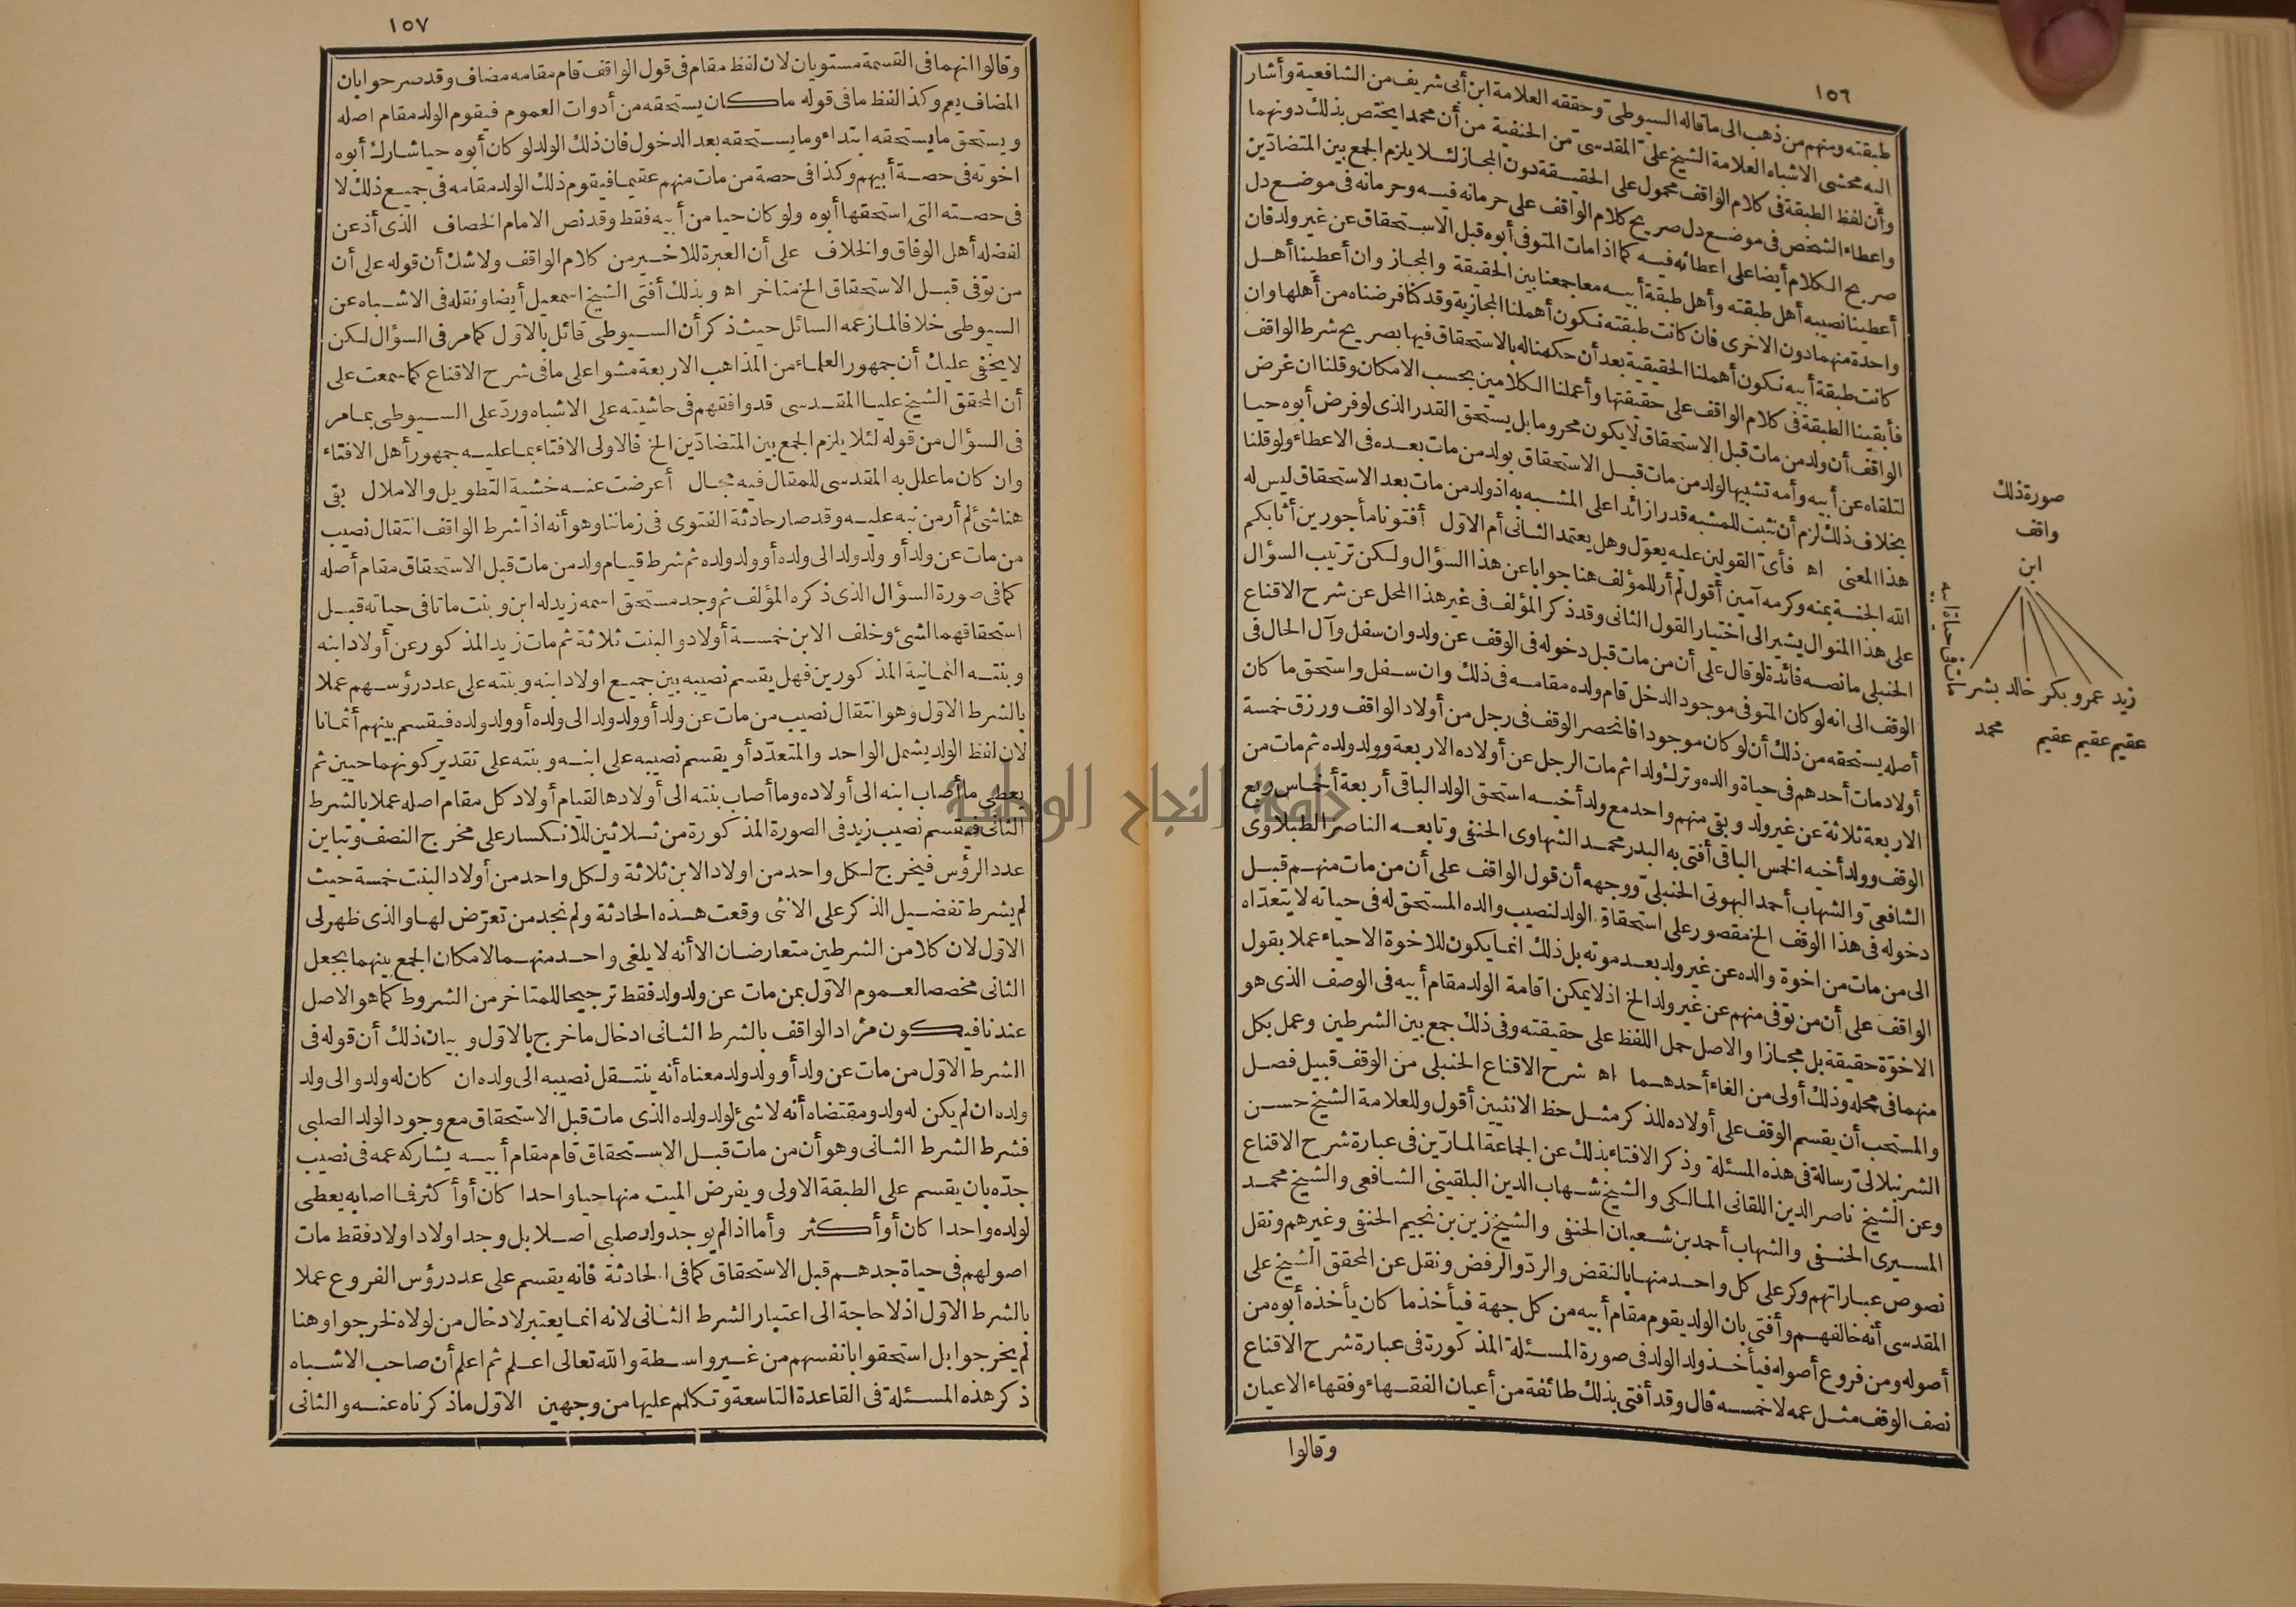 ١٥٦
طبقته ومنهم من ذهب الى ما قاله السيوطى وحققه العلامة ابن أبى شريف من الشافعية وأشار
اليه محشى الاشباه العلامة الشيخ على المقدسى من الحنفية من أن محمدا يختص بذلك دونهما
وأن لفظ الطبقة فى كلام الواقف محمول على الحقيقة دون المجاز لئلا يلزم الجمع بين المتضادين
واعطاء الشخص فى موضع دل صريح كلام الواقف على حرمانه فيه وحرمانه فى موضع دل
صريح الكلام أيضا على اعطائه فيه كما اذا مات المتوفى أبوه قبل الاستحقاق عن غير ولد فان
أعطينا نصيبه أهل طبقته وأهل طبقة أبيه معا جمعنا بين الحقيقة والمجاز وان أعطينا أهل
واحدة منهما دون الاخرى فان كانت طبقته نكون أهملنا المجازية وقد كنا فرضناه من أهلها وان
كانت طبقة أبيه نكون أهملنا الحقيقية بعد أن حكمنا له بالاستحقاق فيها بصريح شرط الواقف
فأبقينا الطبقة فى كلام الواقف على حقيقتها وأعملنا الكلامين بحسب الامكان وقلنا ان غرض
الواقف أن ولد من مات قبل الاستحقاق لا يكون محروما بل يستحق القدر الذى لو فرض أبوه حيا
لتلقاه عن أبيه وأمه تشبيها لولد من مات قبل الاستحقاق بولد من مات بعده فى الاعطاء ولو قلنا
بخلاف ذلك لزم أن نثبت للمشبه قدرا زائدا على المشبه به اذ ولد من مات بعد الاستحقاق ليس له
هذا المعنى اه فأى القولين عليه يعوّل وهل يعتمد الثانى أم الاوّل أفتونا مأجورين أثابكم
الله الجنة بمنه وكرمه آمين أقول لم أر للمؤلف هنا جوابا عن هذا السؤال ولكن ترتيب السؤال
على هذا المنوال يشير الى اختيار القول الثانى وقد ذكر المؤلف فى غير هذا المحل عن شرح الاقناع
الحنبلى ما نصه فائدة لو قال على أن من مات قبل دخوله فى الوقف عن ولد وان سفل وآل الحال فى
الوقف الى انه لو كان المتوفى موجودا لدخل قام ولده مقامه فى ذلك وان سفل واستحق ما كان
أصله يستحقه من ذلك أن لو كان موجودا فانحصر الوقف فى رجل من أولاد الواقف ورزق خمسة
أولاد مات أحدهم فى حياة والده وترك ولدا ثم مات الرجل عن أولاده الاربعة وولد ولده ثم مات من
الاربعة ثلاثة عن غير ولد وبقى منهم واحد مع ولد أخيه استحق الولد الباقى أربعة أخماس ريع
الوقف وولد أخيه الخمس الباقى أفتى به البدر محمد الشهاوى الحنفى وتابعه الناصر الطبلاوى
الشافعى والشهاب أحمد البهوتى الحنبلى ووجهه أن قول الواقف على أن من مات منهم قبل
دخوله فى هذا الوقف الخ مقصور على استحقاق الولد لنصيب والده المستحق له فى حياته لا يتعدّاه
الى من مات من اخوة والده عن غير ولد بعد موته بل ذلك انما يكون للاخوة الاحياء عملا بقول
الواقف على أن من توفى منهم عن غير ولد الخ اذ لا يمكن اقامة الولد مقام أبيه فى الوصف الذى هو
الاخوة حقيقة بل مجازا والاصل حمل اللفظ على حقيقته وفى ذلك جمع بين الشرطين وعمل بكل
منهما فى محله وذلك أولى من الغاء أحدهما اه شرح الاقناع الحنبلى من الوقف قبيل فصل
والمستحب أن يقسم الوقف على أولاده للذكر مثل حظ الانثيين أقول وللعلامة الشيخ حسن
الشرنبلالى رسالة فى هذه المسئلة وذكر الافتاء بذلك عن الجماعة المارّين فى عبارة شرح الاقناع
وعن الشيخ ناصر الدين اللقانى المالكى والشيخ شهاب الدين البلقينى الشافعى والشيخ محمد
المسيرى الحنفى والشهاب أحمد بن شعبان الحنفى والشيخ زين بن نجيم الحنفى وغيرهم ونقل
نصوص عباراتهم وكر على كل واحد منها بالنقض والردّ والرفض ونقل عن المحقق الشيخ على
المقدسى أنه خالفهم وأفتى بان الولد يقوم مقام أبيه من كل جهة فيأخذ ما كان يأخذه أبوه من
أصوله ومن فروع أصوله فيأخذ ولد الولد فى صورة المسئلة المذكورة فى عبارة شرح الاقناع
نصف الوقف مثل عمه لا خمسه قال وقد أفتى بذلك طائفة من أعيان الفقهاء وفقهاء الاعيان
وقالوا
صورة ذلك
واقف
ابن
زيد عمرو بكر خالد بشر
مات فى حياة ابيه
عقيم عقيم عقيم محمد
١٥٧
وقالوا انهما فى القسمة مستويان لان لفظ مقام فى قول الواقف قام مقامه مضاف وقد صرحوا بان
المضاف يعم وكذا لفظ ما فى قوله ما كان يستحقه من أدوات العموم فيقوم الولد مقام اصله
ويستحق ما يستحقه ابتداء وما يستحقه بعد الدخول فان ذلك الولد لو كان أبوه حيا شارك أبوه
اخوته فى حصة أبيهم وكذا فى حصة من مات منهم عقيما فيقوم ذلك الولد مقامه فى جميع ذلك لا
فى حصته التى استحقها أبوه ولو كان حيا من أبيه فقط وقد نص الامام الخصاف الذى أذعن
لفضله أهل الوفاق والخلاف على أن العبرة للاخير من كلام الواقف ولا شك أن قوله على أن
من توفى قبل الاستحقاق الخ متاخر اه وبذلك أفتى الشيخ اسمعيل أيضا ونقله فى الاشباه عن
السيوطى خلافا لما زعمه السائل حيث ذكر أن السيوطى قائل بالاوّل كما مر فى السؤال لكن
لا يخفى عليك أن جمهور العلماء من المذاهب الاربعة مشوا على ما فى شرح الاقناع كما سمعت على
أن المحقق الشيخ عليا المقدسى قد وافقهم فى حاشيته على الاشباه وردّ على السيوطى بما مر
فى السؤال من قوله لئلا يلزم الجمع بين المتضادّين الخ فالاولى الافتاء بما عليه جمهور أهل الافتاء
وان كان ما علل به المقدسى للمقال فيه مجال أعرضت عنه خشية التطويل والاملال بقى
هنا شئ لم أر من نبه عليه وقد صار حادثة الفتوى فى زماننا وهو أنه اذا شرط الواقف انتقال نصيب
من مات عن ولد أو ولد ولد الى ولده أو ولد ولده ثم شرط قيام ولد من مات قبل الاستحقاق مقام أصله
كما فى صورة السؤال الذى ذكره المؤلف ثم وجد مستحق اسمه زيد له ابن وبنت ماتا فى حياته قبل
استحقاقهما لشئ وخلف الابن خمسة أولاد والبنت ثلاثة ثم مات زيد المذكور عن أولاد ابنه
وبنته الثمانية المذكورين فهل يقسم نصيبه بين جميع اولاد ابنه وبنته على عدد رؤسهم عملا
بالشرط الاوّل وهو انتقال نصيب من مات عن ولد أو ولد ولد الى ولده أو ولد ولده فيقسم بينهم أثمانا
لان لفظ الولد يشمل الواحد والمتعدّد أو يقسم نصيبه على ابنه وبنته على تقدير كونهما حيين ثم
يعطى ما أصاب ابنه الى أولاده وما أصاب بنته الى أولادها لقيام أولاد كل مقام اصله عملا بالشرط
الثانى فيقسم نصيب زيد فى الصورة المذكورة من ثلاثين للانكسار على مخرج النصف وتباين
عدد الرؤس فيخرج لكل واحد من اولاد الابن ثلاثة ولكل واحد من أولاد البنت خمسة حيث
لم يشرط تفضيل الذكر على الانثى وقعت هذه الحادثة ولم نجد من تعرّض لها والذى ظهر لى
الاوّل لان كلا من الشرطين متعارضان الا أنه لا يلغى واحد منهما لامكان الجمع بينهما بجعل
الثانى مخصصا لعموم الاوّل بمن مات عن ولد ولد فقط ترجيحا للمتاخر من الشروط كما هو الاصل
عندنا فيكون مراد الواقف بالشرط الثانى ادخال ما خرج بالاوّل وبيان ذلك أن قوله فى
الشرط الاوّل من مات عن ولد أو ولد ولد معناه أنه ينتقل نصيبه الى ولده ان كان له ولد والى ولد
ولده ان لم يكن له ولد ومقتضاه أنه لا شئ لولد ولده الذى مات قبل الاستحقاق مع وجود الولد الصلبى
فشرط الشرط الثانى وهو أن من مات قبل الاستحقاق قام مقام أبيه يشاركه عمه فى نصيب
جدّه بان يقسم على الطبقة الاولى ويفرض الميت منها حيا واحدا كان أو أكثر فما اصابه يعطى
لولده واحدا كان أو أكثر وأما اذا لم يوجد ولد صلبى اصلا بل وجد اولاد اولاد فقط مات
اصولهم فى حياة جدهم قبل الاستحقاق كما فى الحادثة فانه يقسم على عدد رؤس الفروع عملا
بالشرط الاوّل اذ لا حاجة الى اعتبار الشرط الثانى لانه انما يعتبر لادخال من لولاه لخرجوا وهنا
لم يخرجوا بل استحقوا بانفسهم من غير واسطة والله تعالى اعلم ثم اعلم أن صاحب الاشباه
ذكر هذه المسئلة فى القاعدة التاسعة وتكلم عليها من وجهين الاوّل ما ذكرناه عنه والثانى
جامعة النجاح الوطنية